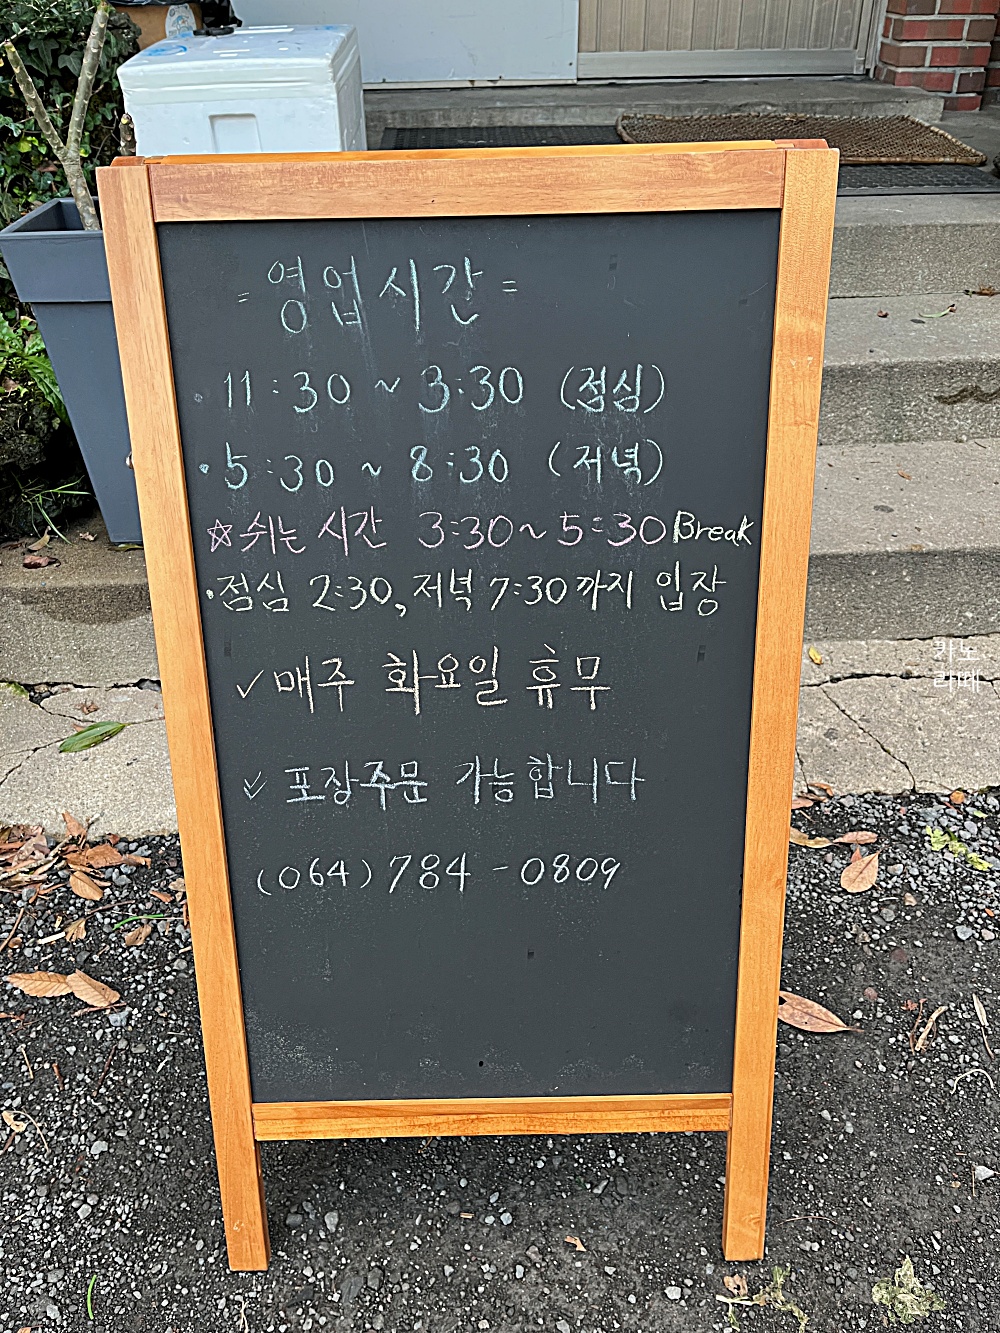 = 영업시간 =
· 11:30 ~ 3:30 (점심)
· 5:30 ~ 8:30 (저녁)
☆ 쉬는 시간 3:30 ~ 5:30 Break
· 점심 2:30, 저녁 7:30까지 입장
✓ 매주 화요일 휴무
✓ 포장주문 가능합니다
(064) 784 - 0809
카노
라떼